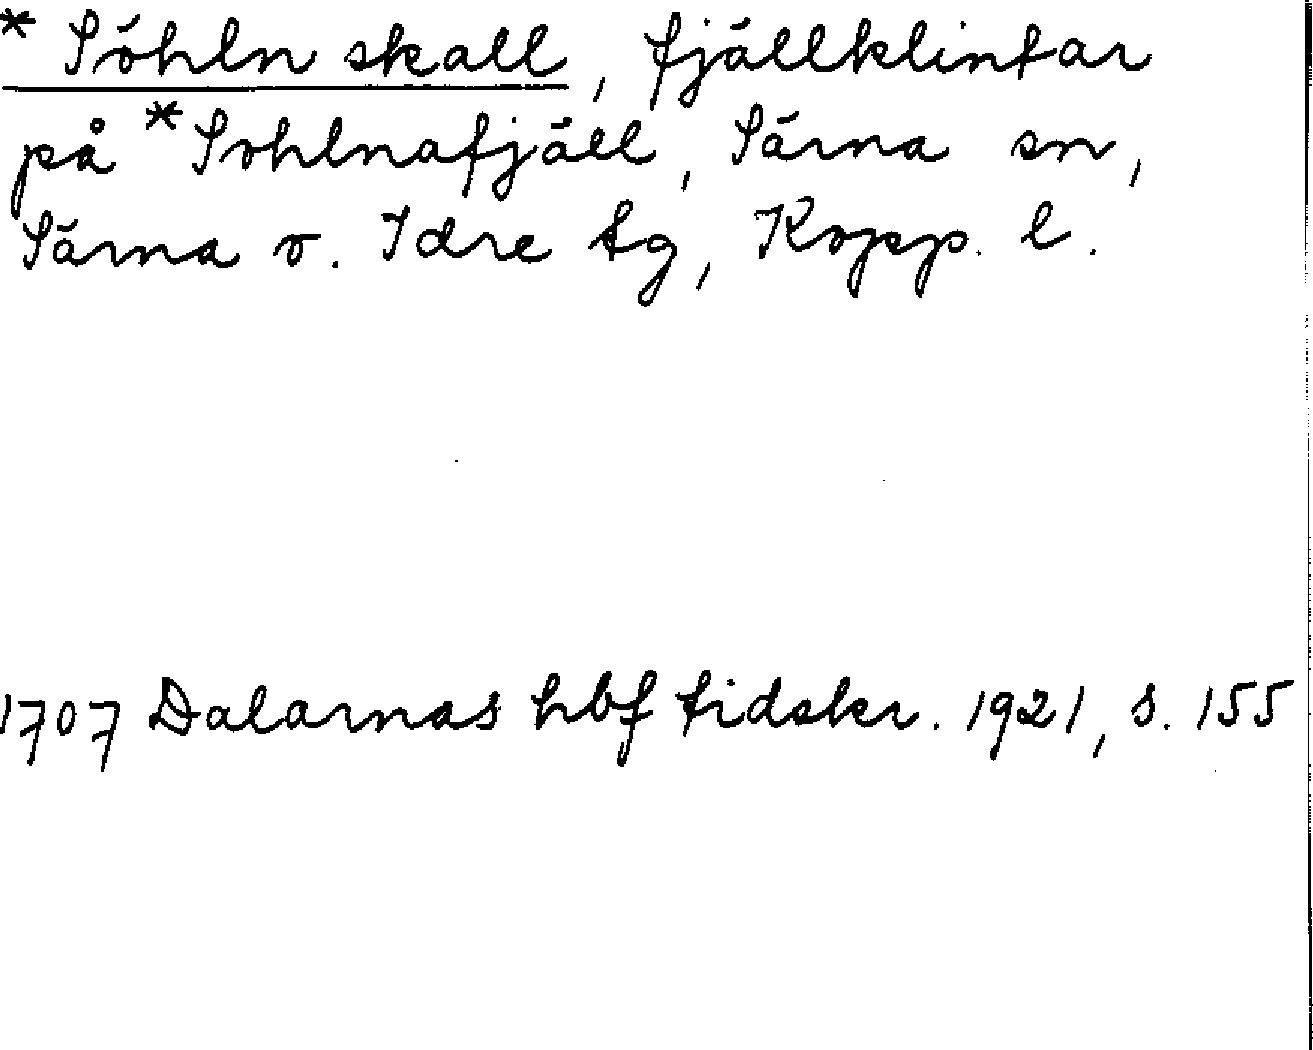 * Söhln skall, fjällklintar
på *Sohlnafjäll, Särna sn,
Särna o. Idre tg, Kopp. l.
1707 Dalarnas hbf tidskr. 1921, s. 155